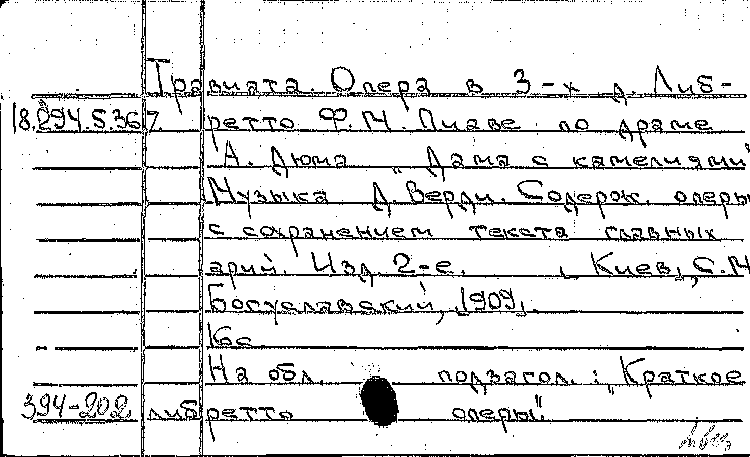 Травиата. Опера в 3-х д. Либ-
18.294.5.367. ретто Ф.М. Пиаве по драме
А. Дюма „Дама с камелиями"
Музыка Д. Верди. Содерж. оперы
с сохранением текста главных
арий. Изд. 2-е. [Киев], С.М
Богуславский, [1909].
16с
На обл. подзагол.: „Краткое
394-202 либретто оперы".